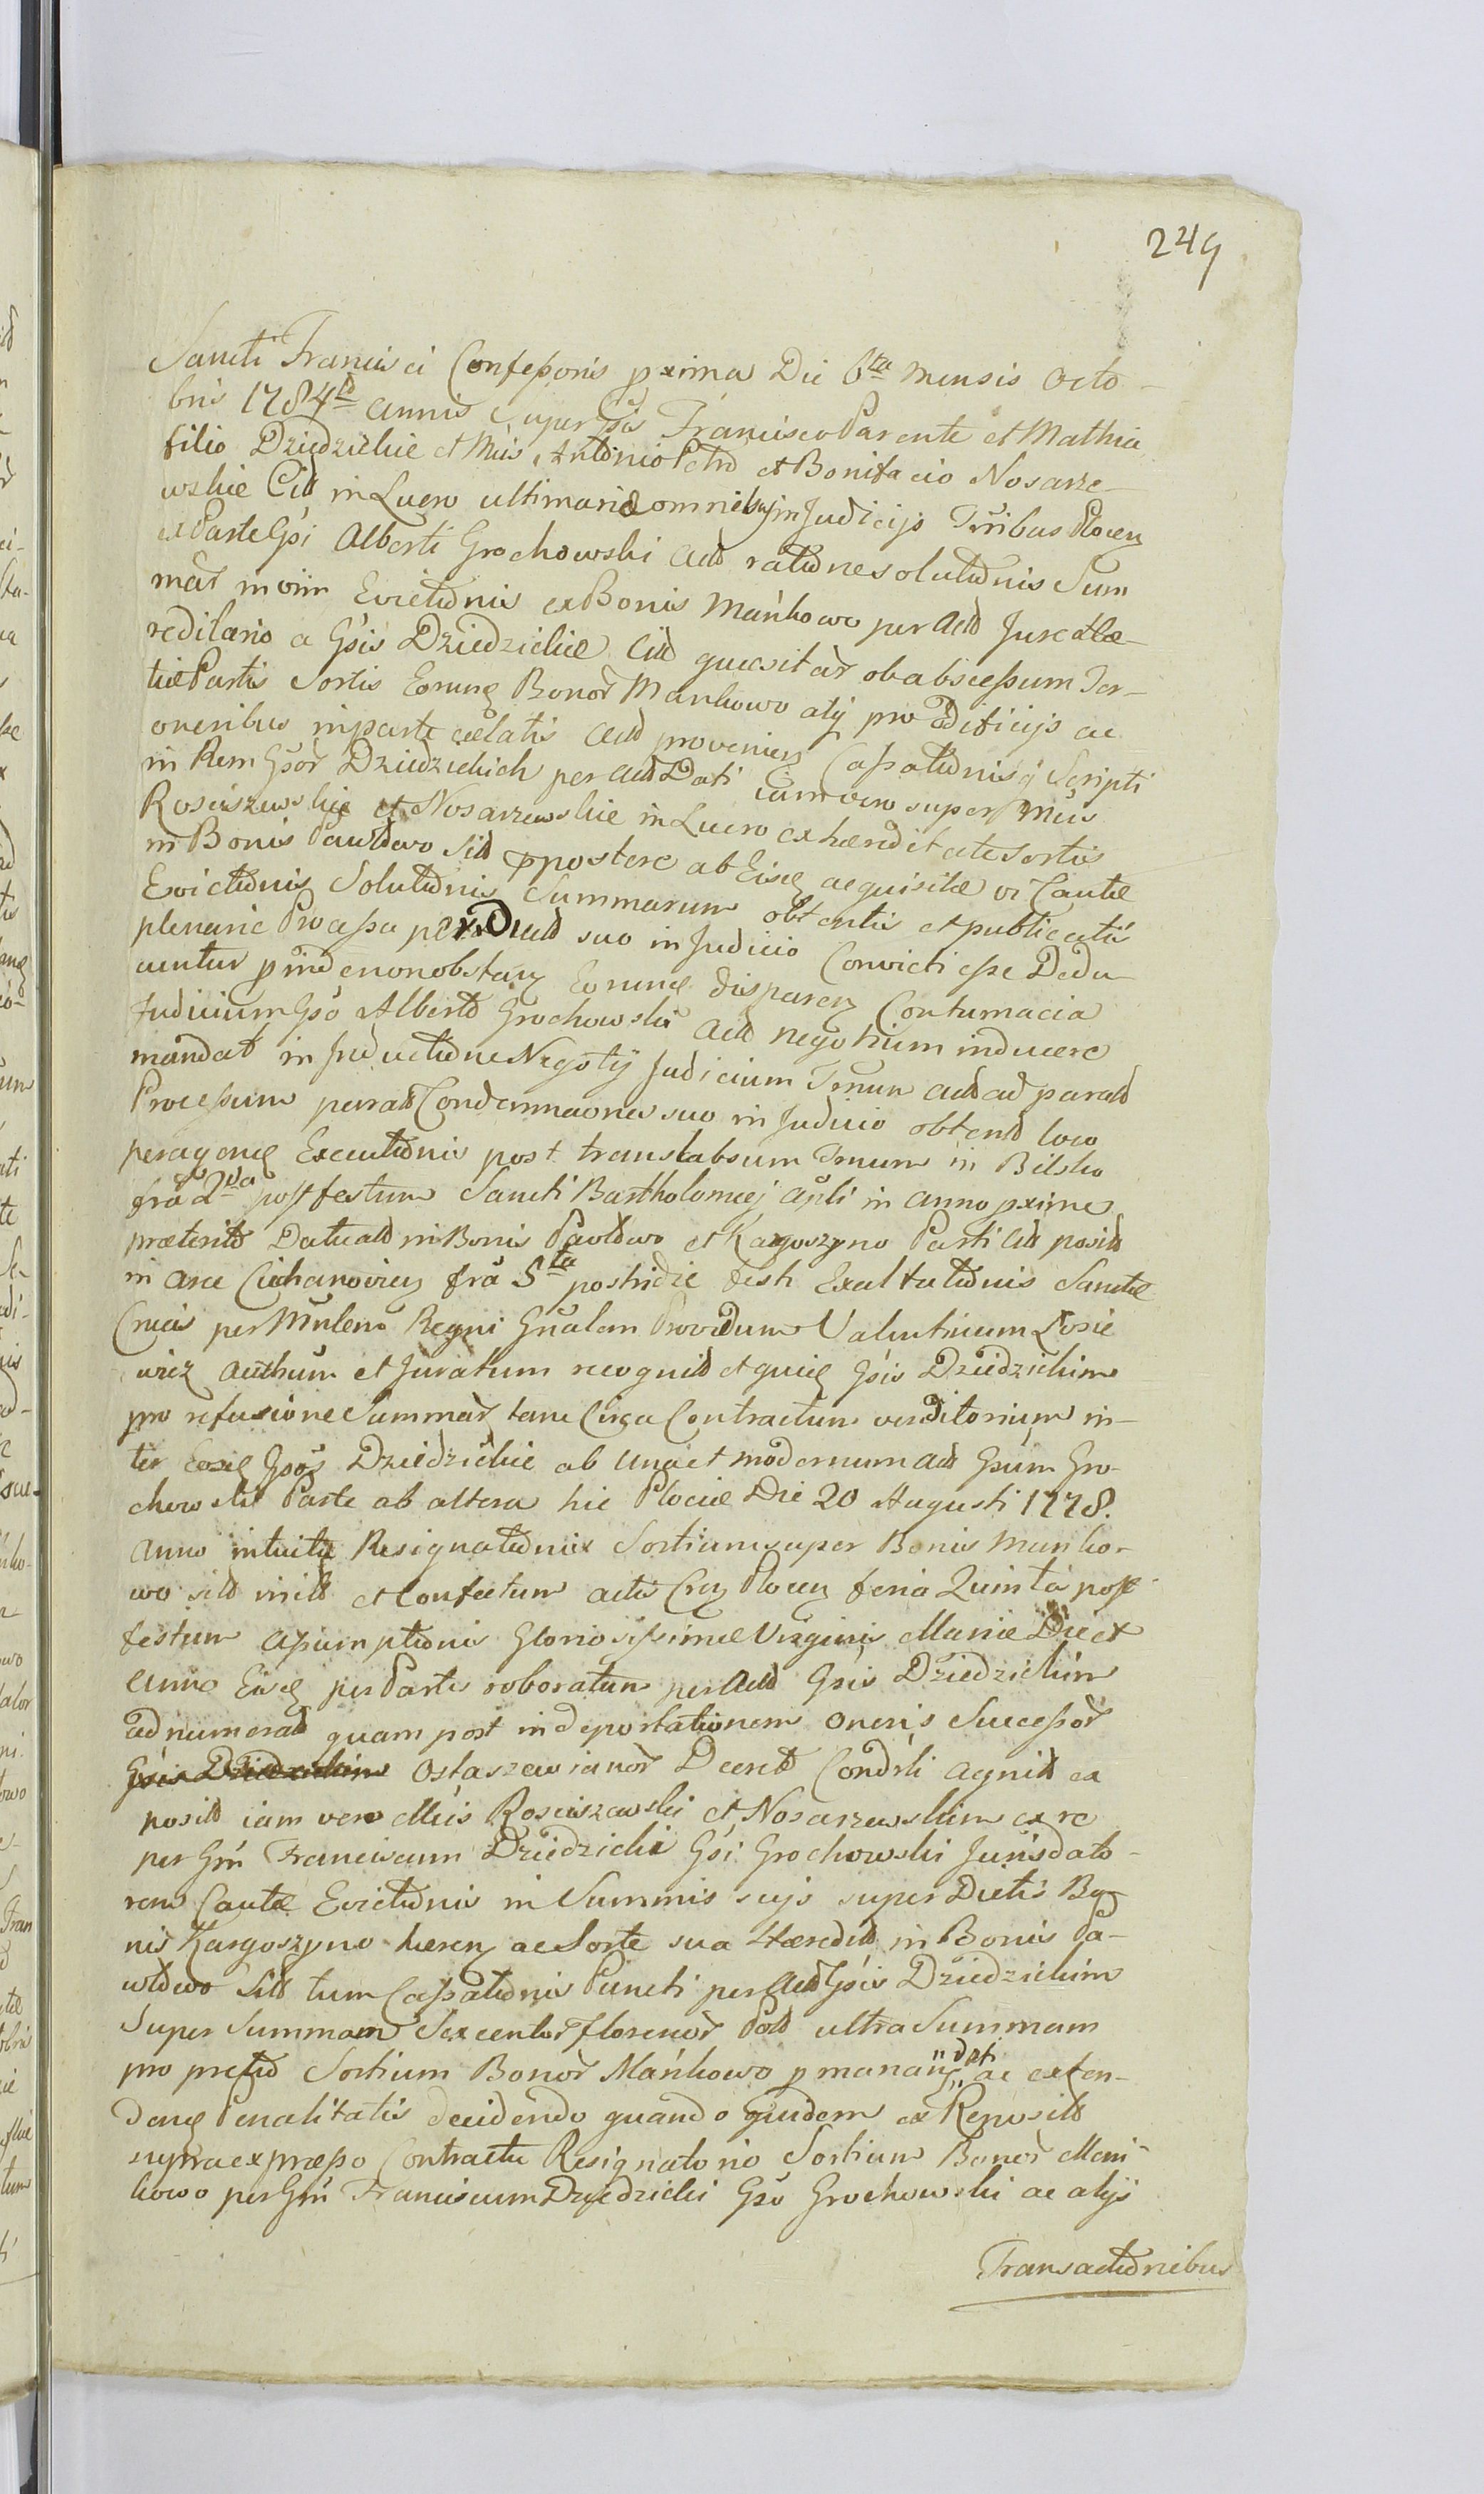 249
Sancti Francisci Confeßoris pxima Die 6ta mensis octo-
bris 1784to annis super Gsis Francisco Parente et Mathia
filio Dziedzickie et Mcis Antonio Petro et Bonifacio Nosarze-
wskie Citt in Lucro ultimario omnibus in Judicijs Trribus Plocen
ex Parte Gsi Alberti Grochowski Actt rationesolutionis Sum
mar in vim Evictionis ex Bonis Mańkowo per Actt Jure Hæ-
reditario a Gsis Dziedzickie Citt quæsitar ob absceßum Ter-
tiæ Partis Sortis Eorumq Bonor Mankowo alij pro Ædificijs ac
oneribus in parte cælatis Actt provenien Caßationisq Scripti
in Rem Gsor Dziedzickich per Actt Dati iam vero super Mcis
Rosciszewskie et Nosarzewskie in Lucro ex hæreditate Sortis
in Bonis Pawłowo Sitt postere ab Eisq acquisitæ vi Cautæ
Evictionis Solutionis Summarum obtentis et publicatis
plenarie Proceßu per Actt suo in Judicio Convicti eße Dedu
cuntur pinde non obstan Eorumq disparen Contumacia
Judicium Gso Alberto Grochowski Actt negotium inducere
mandat in Inductione Negotij Judicium Trnum Actt ad paratt
Proceßum paratt Condemnaones suo in Judicio obtent loco
peragenq Executionis post translabsum Trnum in Bilsko
fra 2da post festum Sancti Bartholomej Apli in anno pxime
præterito Datuatt in Bonis Pawłowo et Kargoszyno Parti Citt positt
in arce Ciechanovien fra 5ta postridie festi Exaltationis Sanctæ
Crucis per Mnlem Regni Gnalem Providum Valentinum Losie
wicz Authum et Juratum recognitt et quiq Gsis Dziedzickim
pro refusione Summar tam Circa Contractum venditorium in-
ter Eosq Gsos Dziedzickie ab una et modernum Actt Gsum Gro-
chowski Parte ab altera hic Plociæ Die 20 Augusti 1778.
anno intuitu Resignationis Sortium super Bonis Manko-
wo sitt initt et Confectum actis Cren Plocen feria Quinta post
festum aßumptionis Gloriosißimæ Virginis Mariæ Die et
Anno Eisq per Partes roboratum per Actt Gsis Dziedzickim
adnumeratt quam post indeportationem oneris Succeßor
Gsis Dziedzickim Ostaszewianor Decreto Condrli agnitt ex
positt iam vero Mcis Rosciszewski et Nosarzewskim ex re
per Gm Franciscum Dziedzicki Gsi Grochowski Jurisdato-
rem Cautæ Evictionis in Summis sujs super Dictis Bo
nis Kargoszyno hæren ac Sorte sua Hæreditt in Bonis Pa-
włowo Sitt tum Caßationis Puncti per Actt Gsis Dziedzickim
Super Summam Sexcentor florenor Poll ultra Summam
pro pretio Sortium Bonor Mańkowo pmanan dati ac exten-
denq Penalitatis decidendo quando quidem ex Reposito
supraexpræßo Contractu Resignatorio Sortium Bonor Mań-
kowo per Gm Franciscum Dziedzicki Gso Grochowski ac alijs
Transactionibus